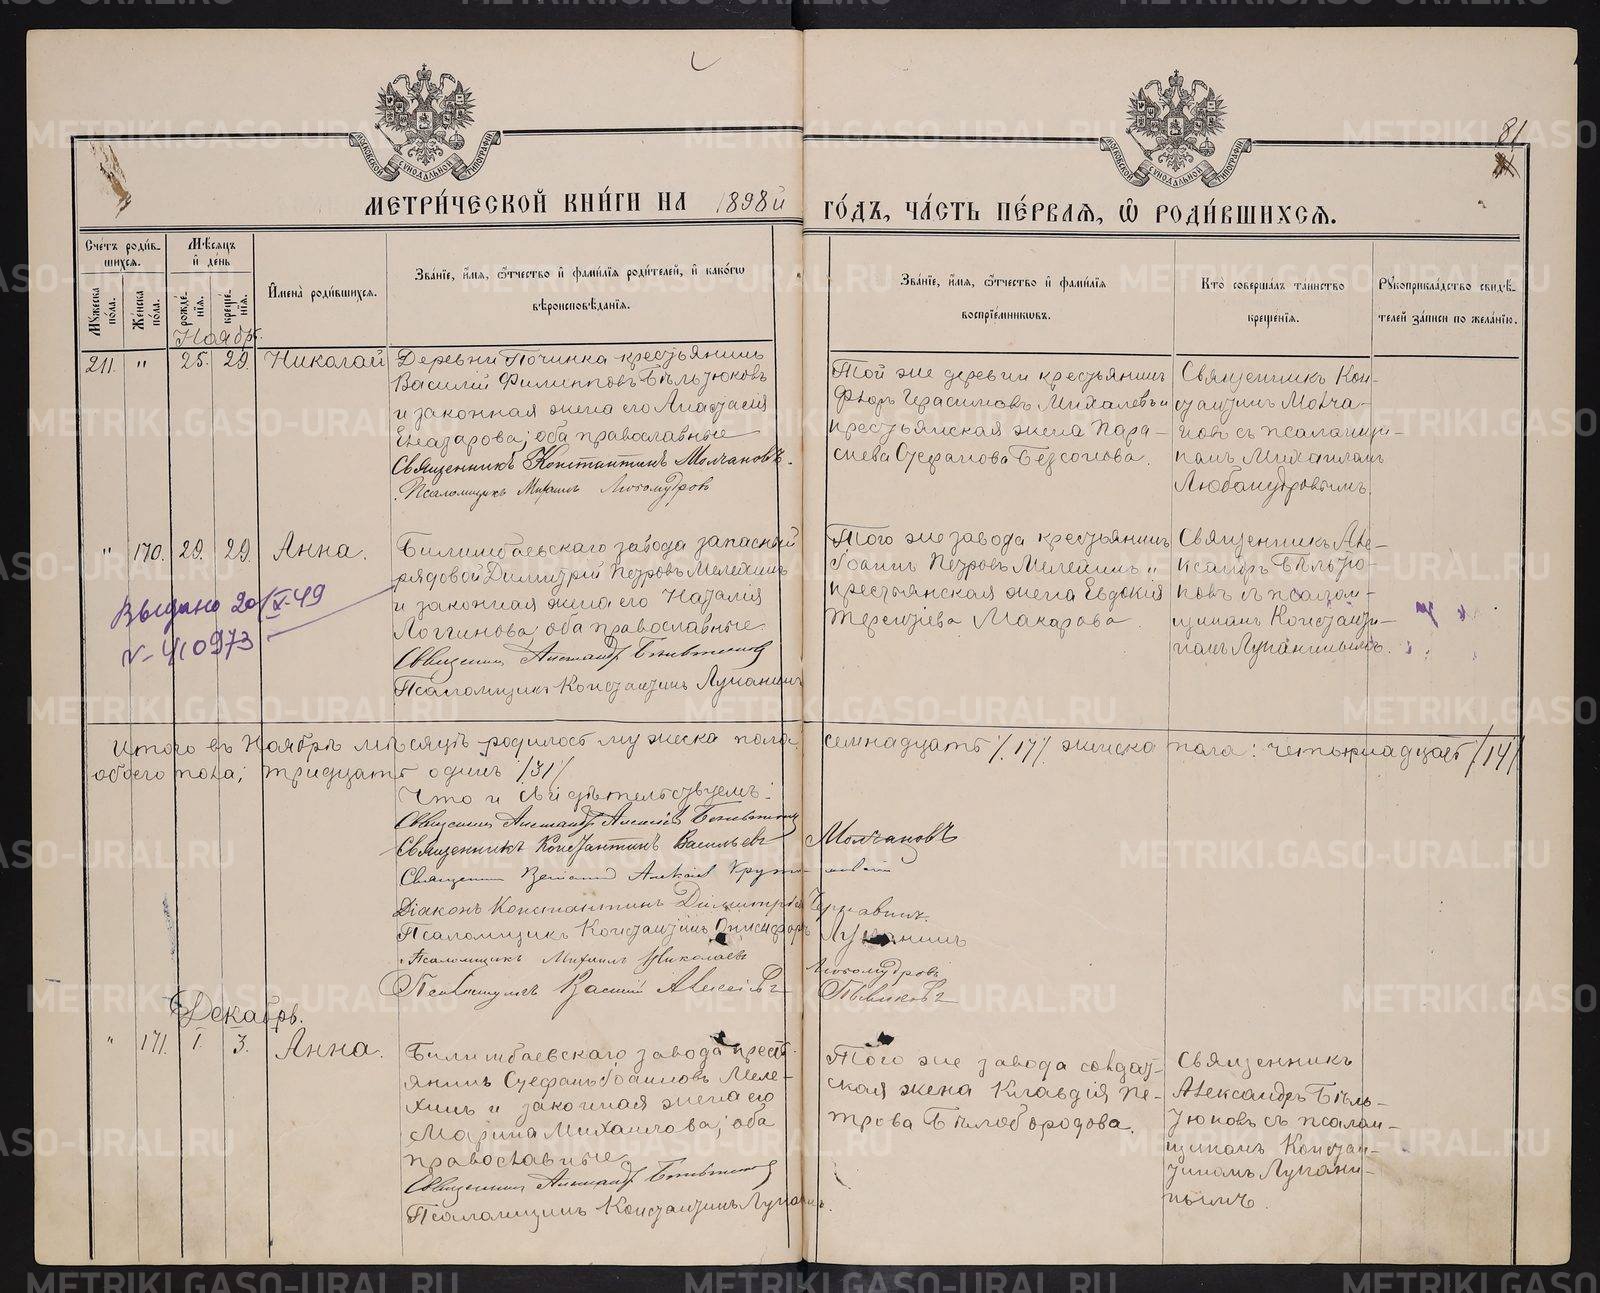 81
МОСКОВСКОЙ СѴНОДАЛЬНОЙ ТИПОГРАФІИ
МОСКОВСКОЙ СѴНОДАЛЬНОЙ ТИПОГРАФІИ
МЕТРИ́ЧЕСКОЙ КНИ́ГИ НА 1898й
ГО́ДЪ, ЧА́СТЬ ПЕ́РВАЯ, Ѽ РОДИ́ВШИХСЯ.
Счетъ роди́вшихся.
Мужеска по́ла.
Же́нска по́ла.
Мѣ́сяцъ и де́нь
рожде́нія.
креще́нія.
И҆мена̀ роди́вшихся.
Зва́ніе, и҆́мя, ѻ҆́тчество и҆ фами́лія роди́телей, и҆ како́гѡ
вѣроисповѣ́данія.
Зва́ніе, и҆́мя, ѻ҆́тчество и҆ фами́лія
воспріе́мниковъ.
Кто̀ соверша́лъ та́инство
креще́нія.
Рукоприкла́дство свидѣ́-
телей за́писи по жела́нію.
Ноябрь.
211. " 25. 29. Николай
Деревни Починка крестьянинъ
Василій Филипповъ Бѣльтюковъ
и законная жена его Анастасія
Елеазарова; оба православные
Священникъ Константинъ Молчановъ.
Псаломщикъ Михаилъ Любомудровъ
Той же деревни крестьянинъ
Ѳеодоръ Герасимовъ Михалевъ и
крестьянская жена Пара-
скева Стефанова Безсонова.
Священникъ Кон-
стантинъ Молча-
новъ съ псаломщи-
комъ Михаиломъ
Любомудровымъ.
" 170. 29. 29. Анна.
Билимбаевскаго завода запасный
рядовой Димитрій Петровъ Мелехинъ
и законная жена его Наталія
Логгинова; оба православные.
Священникъ Александръ Бѣльтюковъ
Псаломщикъ Константинъ Луканинъ
Того же завода крестьянинъ
Іоаннъ Петровъ Мелехинъ и
крестьянская жена Евдокія
Терентіева Макарова.
Священникъ Але-
ксандръ Бѣльтю-
ковъ съ псалом-
щикомъ Константи-
номъ Луканинымъ.
Выдано 20/X-49
№ 410973
Итого въ Ноябрѣ мѣсяцѣ родилось мужеска пола семнадцать /17/ женска пола: четырнадцать /14/
обоего пола; тридцать одинъ /31/
Что и свидѣтельствуемъ:
Священникъ Александръ Алексѣевъ Бѣльтюковъ
Священникъ Константинъ Васильевъ Молчановъ
Священникъ Алексѣевъ
Діаконъ Константинъ Димитріевъ
Псаломщикъ Константинъ Онисифоровъ Луканинъ
Псаломщикъ Михаилъ Николаевъ Любомудровъ
Псаломщикъ Василій Алексѣевъ
Декабрь.
" 171. 1. 3. Анна.
Билимбаевскаго завода кресть-
янинъ Стефанъ Іоанновъ Меле-
хинъ и законная жена его
Марина Михаилова; оба
православные.
Священникъ Александръ Бѣльтюковъ
Псаломщикъ Константинъ Луканинъ.
Того же завода солдат-
ская жена Клавдія Пе-
трова Бѣлобородова.
Священникъ
Александръ Бѣль-
тюковъ съ псалом-
щикомъ Констан-
тиномъ Лукани-
нымъ.
METRIKI.GASO-URAL.RU